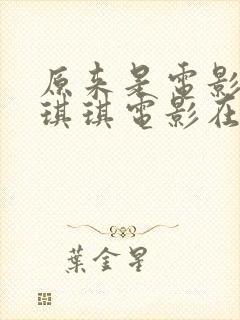 原来是電影
琪琪電影在
葉金星